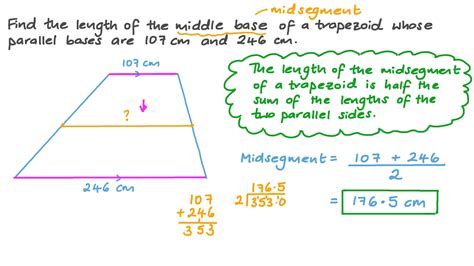 midsegment
Find the length of the middle base of a trapezoid whose
parallel bases are 107 cm and 246 cm.
107 cm
?
246 cm
The length of the midsegment
of a trapezoid is half the
sum of the lengths of the
two parallel sides.
Midsegment = 107 + 246
2
= 176.5 cm
107
+ 246
353
176.5
2 353.0